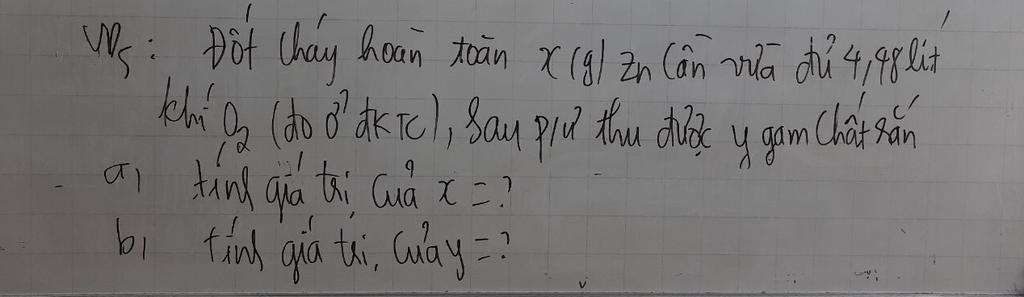 VD5: Đốt cháy hoàn toàn x (g) Zn cần vừa đủ 4,48 lít
khí O2 (đo ở đktc), sau p/ư thu được y gam chất rắn
a, tính giá trị của x = ?
b, tính giá trị của y = ?